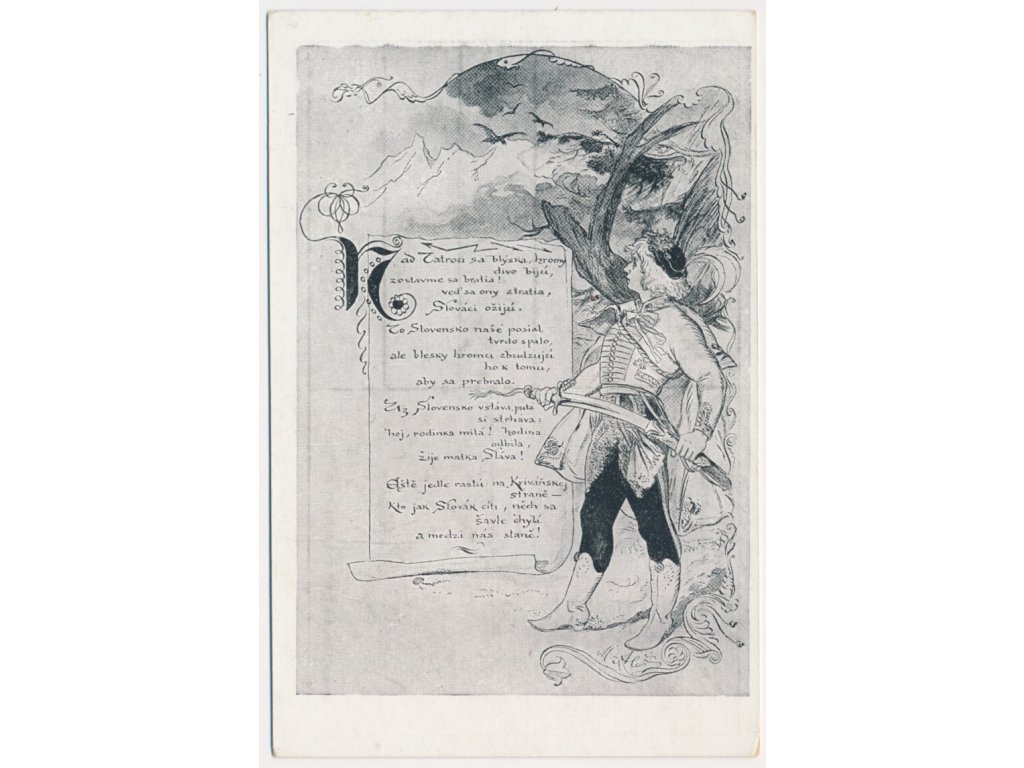 Nad Tatrou sa blýska, hromy
divo bijú,
zostavme sa bratia!
veď sa ony ztratia,
Slováci ožijú.
To Slovensko naše posial
tvrdo spalo,
ale blesky hromu zbudzujú
ho k tomu,
aby sa prebralo.
Už Slovensko vstáva, puta
si strháva:
hej, rodinka milá! hodina
odbila,
žije matka Sláva!
Eště jedle rastú na Kriváňskej
straně —
Kto jak Slovák cíti, něch sa
šavle chytí
a medzi nás staně!